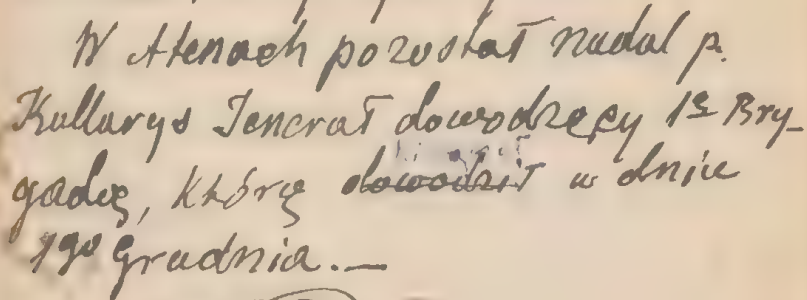 W Atenach pozostał nadal p.
Kallarys Jenerał dowodzący 1ą Bry-
gadą, którą dowodził w dniu
1go Grudnia.—